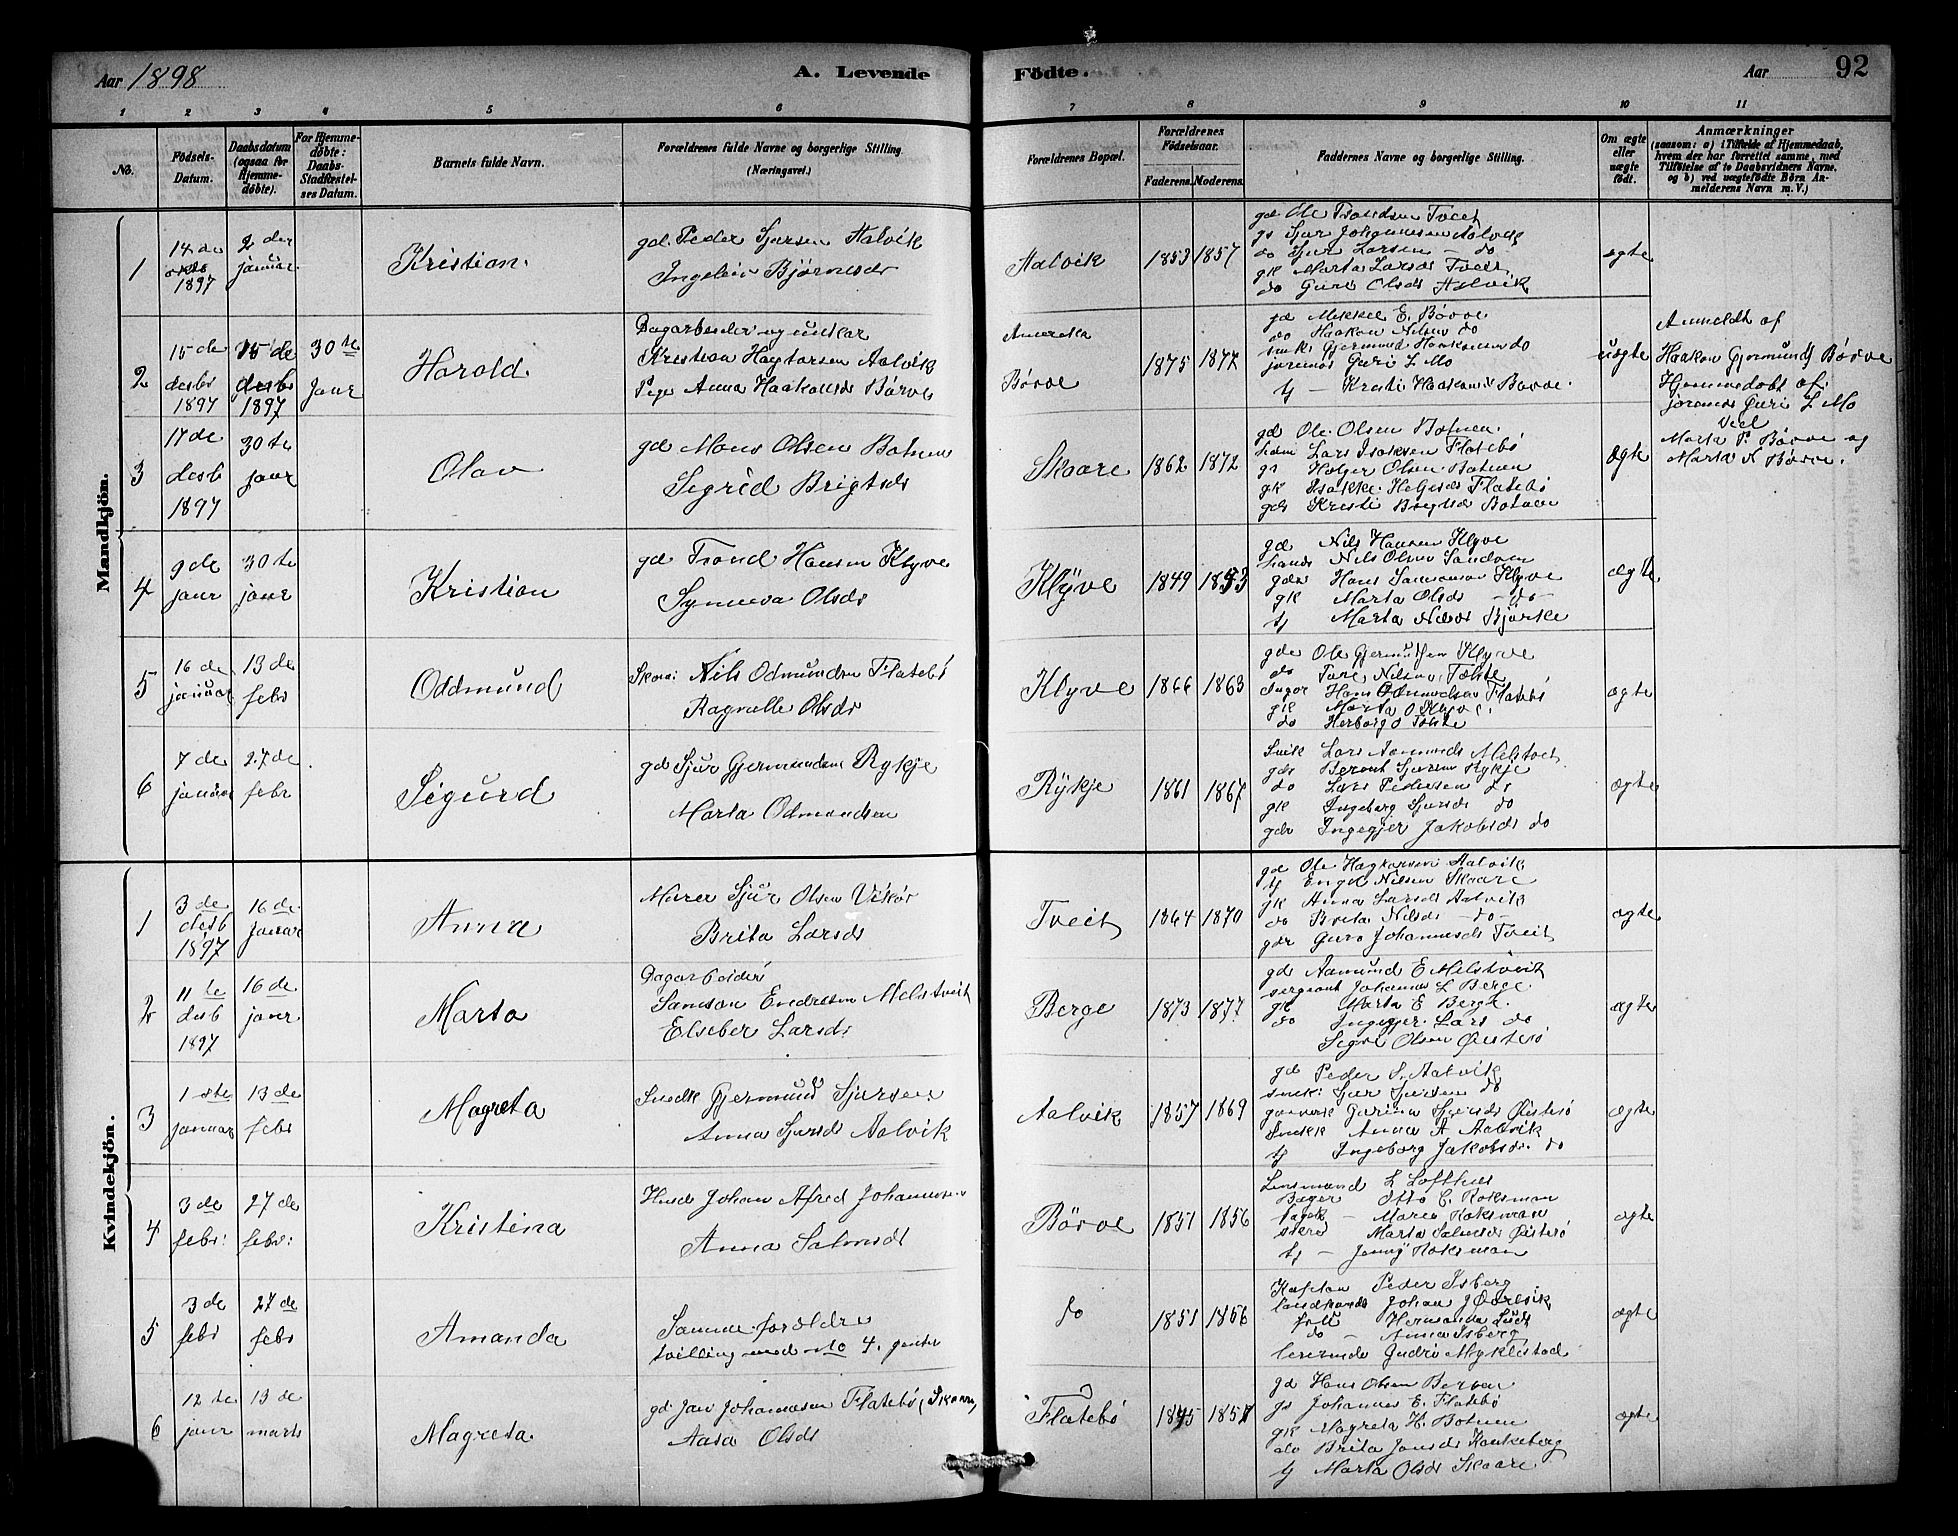 Aar 1898
A. Levende Födte.
Aar
92
1 2 3 4 5 6 7 8 9 10 11
No.
Födsels-Datum.
Daabsdatum (ogsaa for Hjemme-döbte).
For Hjemme-döbte: Daabs-Stadfæstelses Datum.
Barnets fulde Navn.
Forældrenes fulde Navne og borgerlige Stilling. (Næringsvei.)
Forældrenes Bopæl.
Forældrenes Födselsaar.
Faderens. Moderens.
Faddernes Navne og borgerlige Stilling.
Om ægte eller uægte födt.
Anmærkninger
(saasom: a) i Tilfælde af Hjemmedaab, hvem der har forrettet samme, med Tilföielse af to Daabsvidners Navne, og b) ved uægtefödte Börn Anmelderens Navn m. V.)
Mandkjön.
1
14 de okto 1897
2 den januar
Kristian.
gd. Peder Sjursen Aalvik
Ingeleiv Bjørnsdr
Aalvik
1853 1857
gd Ole Trondsen Tveit
gs Sjur Johannesen Aalvik
do Sjur Larsen - do
gk Marta Larsdr Tveit
do Guri Olsdr Aalvik
ægte
2
15 de desbr 1897
15 de desbr 1897
30 te Janr
Harold
Dagarbeider og unkar
Kristian Hagtorsen Aalvik
Pige Anna Haakonsdr Børve
Amerika
Børve
1875 1877
gd Mikkel E. Børve
do Haakon Nilsen do
smk: Gjermund Haakonsen do
jormor Guri L Mo
tj - Kristi Haakonsd Børve.
uægte
Anmeldt af
Haakon Gjermunds Børve
Hjemmedøbt af
jormor Guri L Mo
Ved
Marta P. Børve og
Marta N Børve.
3
17 de desb 1897
30 te janr
Olav
gd Mons Olsen Botnen
Sigrid Brigtsdr
Skaare
1862 1872
gd Ole Olsen Botnen
Lars Isaksen Flatebø
gs Holger Olsen Botnen
gk Isakke Helgesdr Flatebø
gds Kristi Brigtsdr Botnen
ægte
4
9 de janr
30 te janr
Kristian
gd Trond Hansen Klyve
Synneva Olsdr
Klyve
1849 1853
gd Nils Hansen Klyve
Nils Olsen Sandven
gds Hans Samsonsen Klyve
gk Marta Olsdr - do -
tj Marta Nilsdr Bjørke
ægte
5
16 de januar
13 de febr
Oddmund
Skom: Nils Odmundsen Flatebø
Ragnelle Olsdr
Klyve
1866 1863
gds Ole Gjermundsen Klyve
do Tore Nilsen Tolste
Hans Odmundsen Flatebø
gk Marta O Klyve.
do Herborg O Tolste
ægte
6
7 de januar
27 de febr
Sigurd
gd Sjur Gjermundsen Rykje
Marta Odmundsen
Rykje
1861 1867
Snik Lars Aamunds Melstveit
gds Berent Sjursen Rykje
do Lars Pedersen do
gk Ingeborg Sjursdr do
gds Ingegjer Jakobsdr do
ægte
Kvindekjön.
1
3 de desb 1897
16 de Januar
Anna
Murer Sjur Olsen Vikør
Brita Larsdr
Tveit
1864 1870
gd Ole Hagtorsen Aalvik
tj Engel Nilsen Skaare
gk Anna Larsdr Aalvik
do Brita Nilsdr - do -
gds Guro Johannesdr Tveit
ægte
2
11 te desb 1897
16 de janr
Marta
Dagarbeider
Samson Endresen Melstveit
Elseber Larsdr
Berge
1873 1877
gds Aamund E Melstveit
sergeant Johannes L Berge
gk Marta E Berge.
do Ingegjer Lars do
Sigve Olsen Øistesø
ægte
3
1 ste januar
13 de febr
Magreta
Snedk Gjermund Sjursen
Anna Sjursdr Aalvik
Aalvik
1857 1869
gd Peder S. Aalvik
snek: Sjur Sjursen do
Gurina Sjursdr Øistesø
Snekk Anna A Aalvik
tj Ingeborg Jakobsdr. do
ægte
4
3 de febr:
27 de febr:
Kristina
Husd Johan Afred Johannesen
Anna Salmsdr
Børve
1851 1856
Lensmand L Lofthus
Bager Otto C. Koksman
Marie Koksman
Marta Salmesdr Øistesø
tj - Jenny Koksman
ægte
5
3 de febr
27 de febr
Amanda
Samme forældre
tvilling med No 4. genter
do
1851 1856
Kaptan Peder Isberg
Johan J Øvrevik
Hermanda Luds
do - Anna Isberg
lærerinde Gudri Myklestad
ægte
6
12 te janr
13 de marts
Magreta.
gd Jan Johannesen Flatebø (Skaare)
Aasa Olsdr
Flatebø
1845 1857
gd Hans Olsen Berven
gs Johannes E. Flatebø
gk Magreta H. Botnen
do Brita Jansdr Kankeberg
tj Marta Olsdr Skaare
ægte